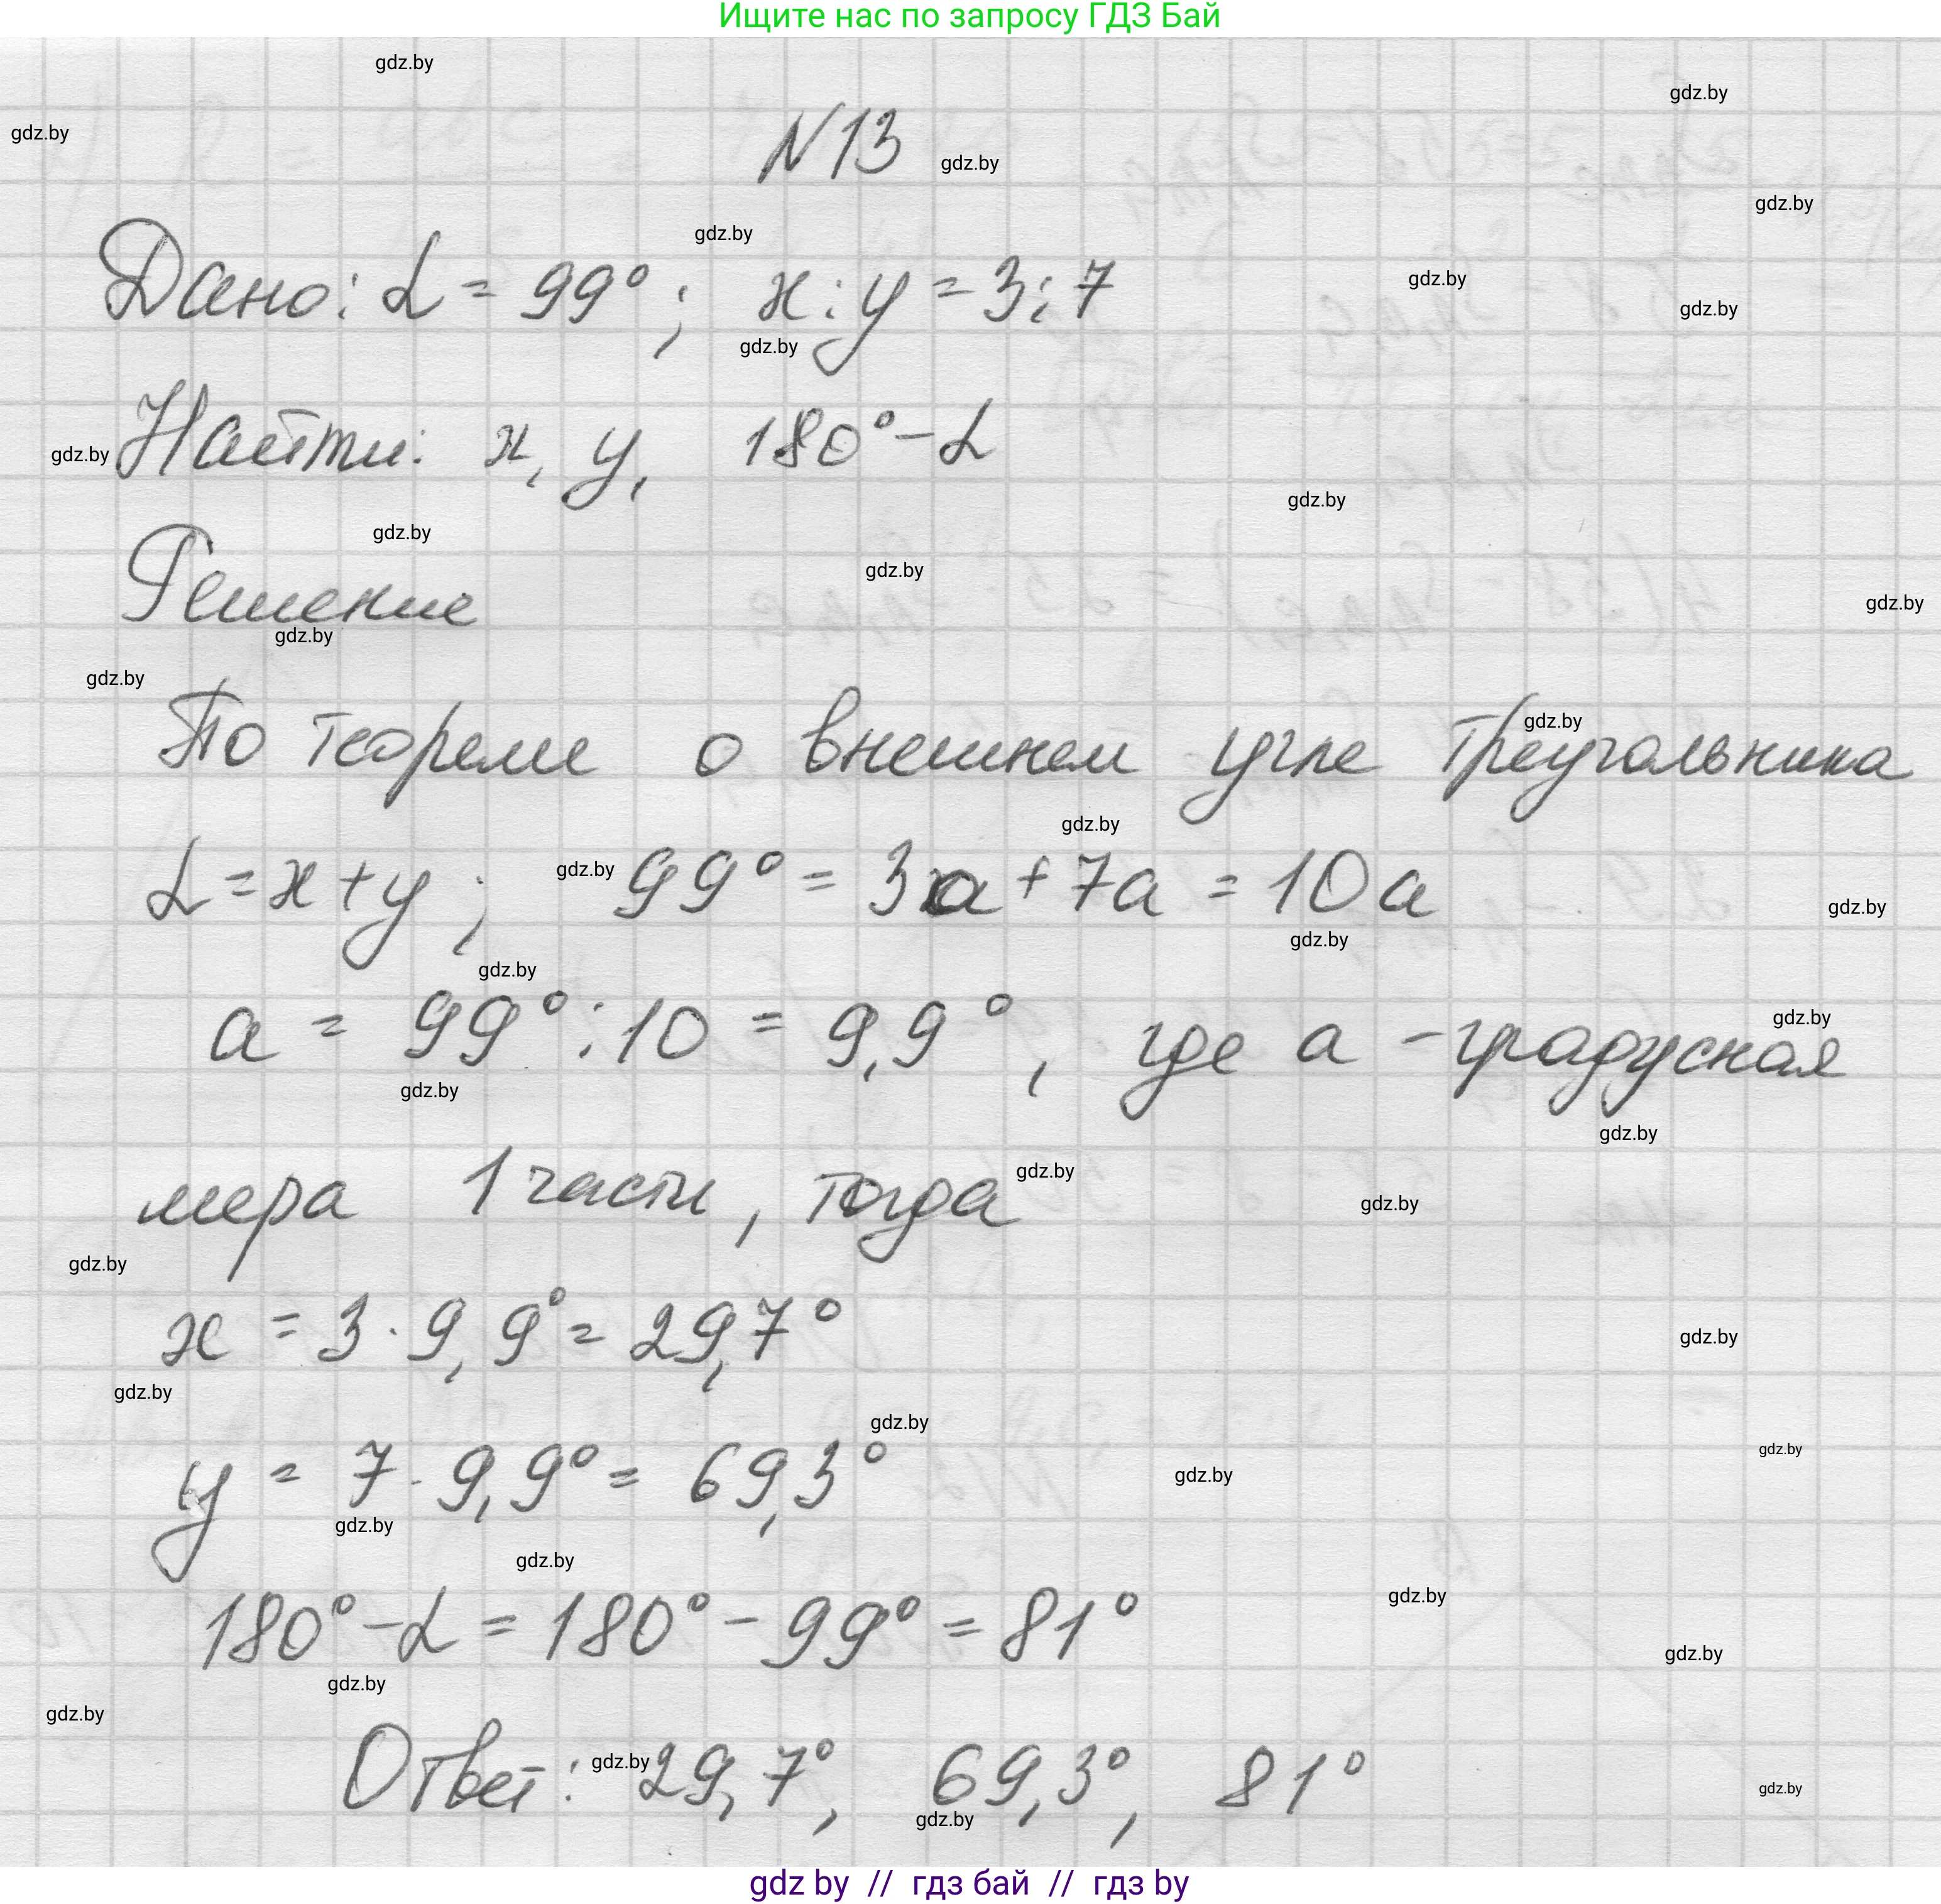 Ищите нас по запросу ГДЗ Бай
gdz.by
gdz.by
gdz.by
N13
gdz.by
gdz.by
gdz.by
Дано: α = 99°; x : y = 3 : 7
gdz.by
gdz.by
gdz.by
Найти: x, y, 180° - α
gdz.by
gdz.by
gdz.by
gdz.by
Решение
gdz.by
gdz.by
gdz.by
По теореме о внешнем угле треугольника
gdz.by
gdz.by
α = x + y; 99° = 3a + 7a = 10a
gdz.by
gdz.by
gdz.by
gdz.by
a = 99° : 10 = 9,9°, где a - градусная
gdz.by
gdz.by
gdz.by
мера 1 части, тогда
gdz.by
gdz.by
gdz.by
x = 3 · 9,9° = 29,7°
gdz.by
gdz.by
gdz.by
gdz.by
y = 7 · 9,9° = 69,3°
gdz.by
gdz.by
gdz.by
gdz.by
180° - α = 180° - 99° = 81°
gdz.by
gdz.by
gdz.by
Ответ: 29,7°, 69,3°, 81°
gdz.by
gdz.by
gdz.by
gdz by // гдз бай // гдз by